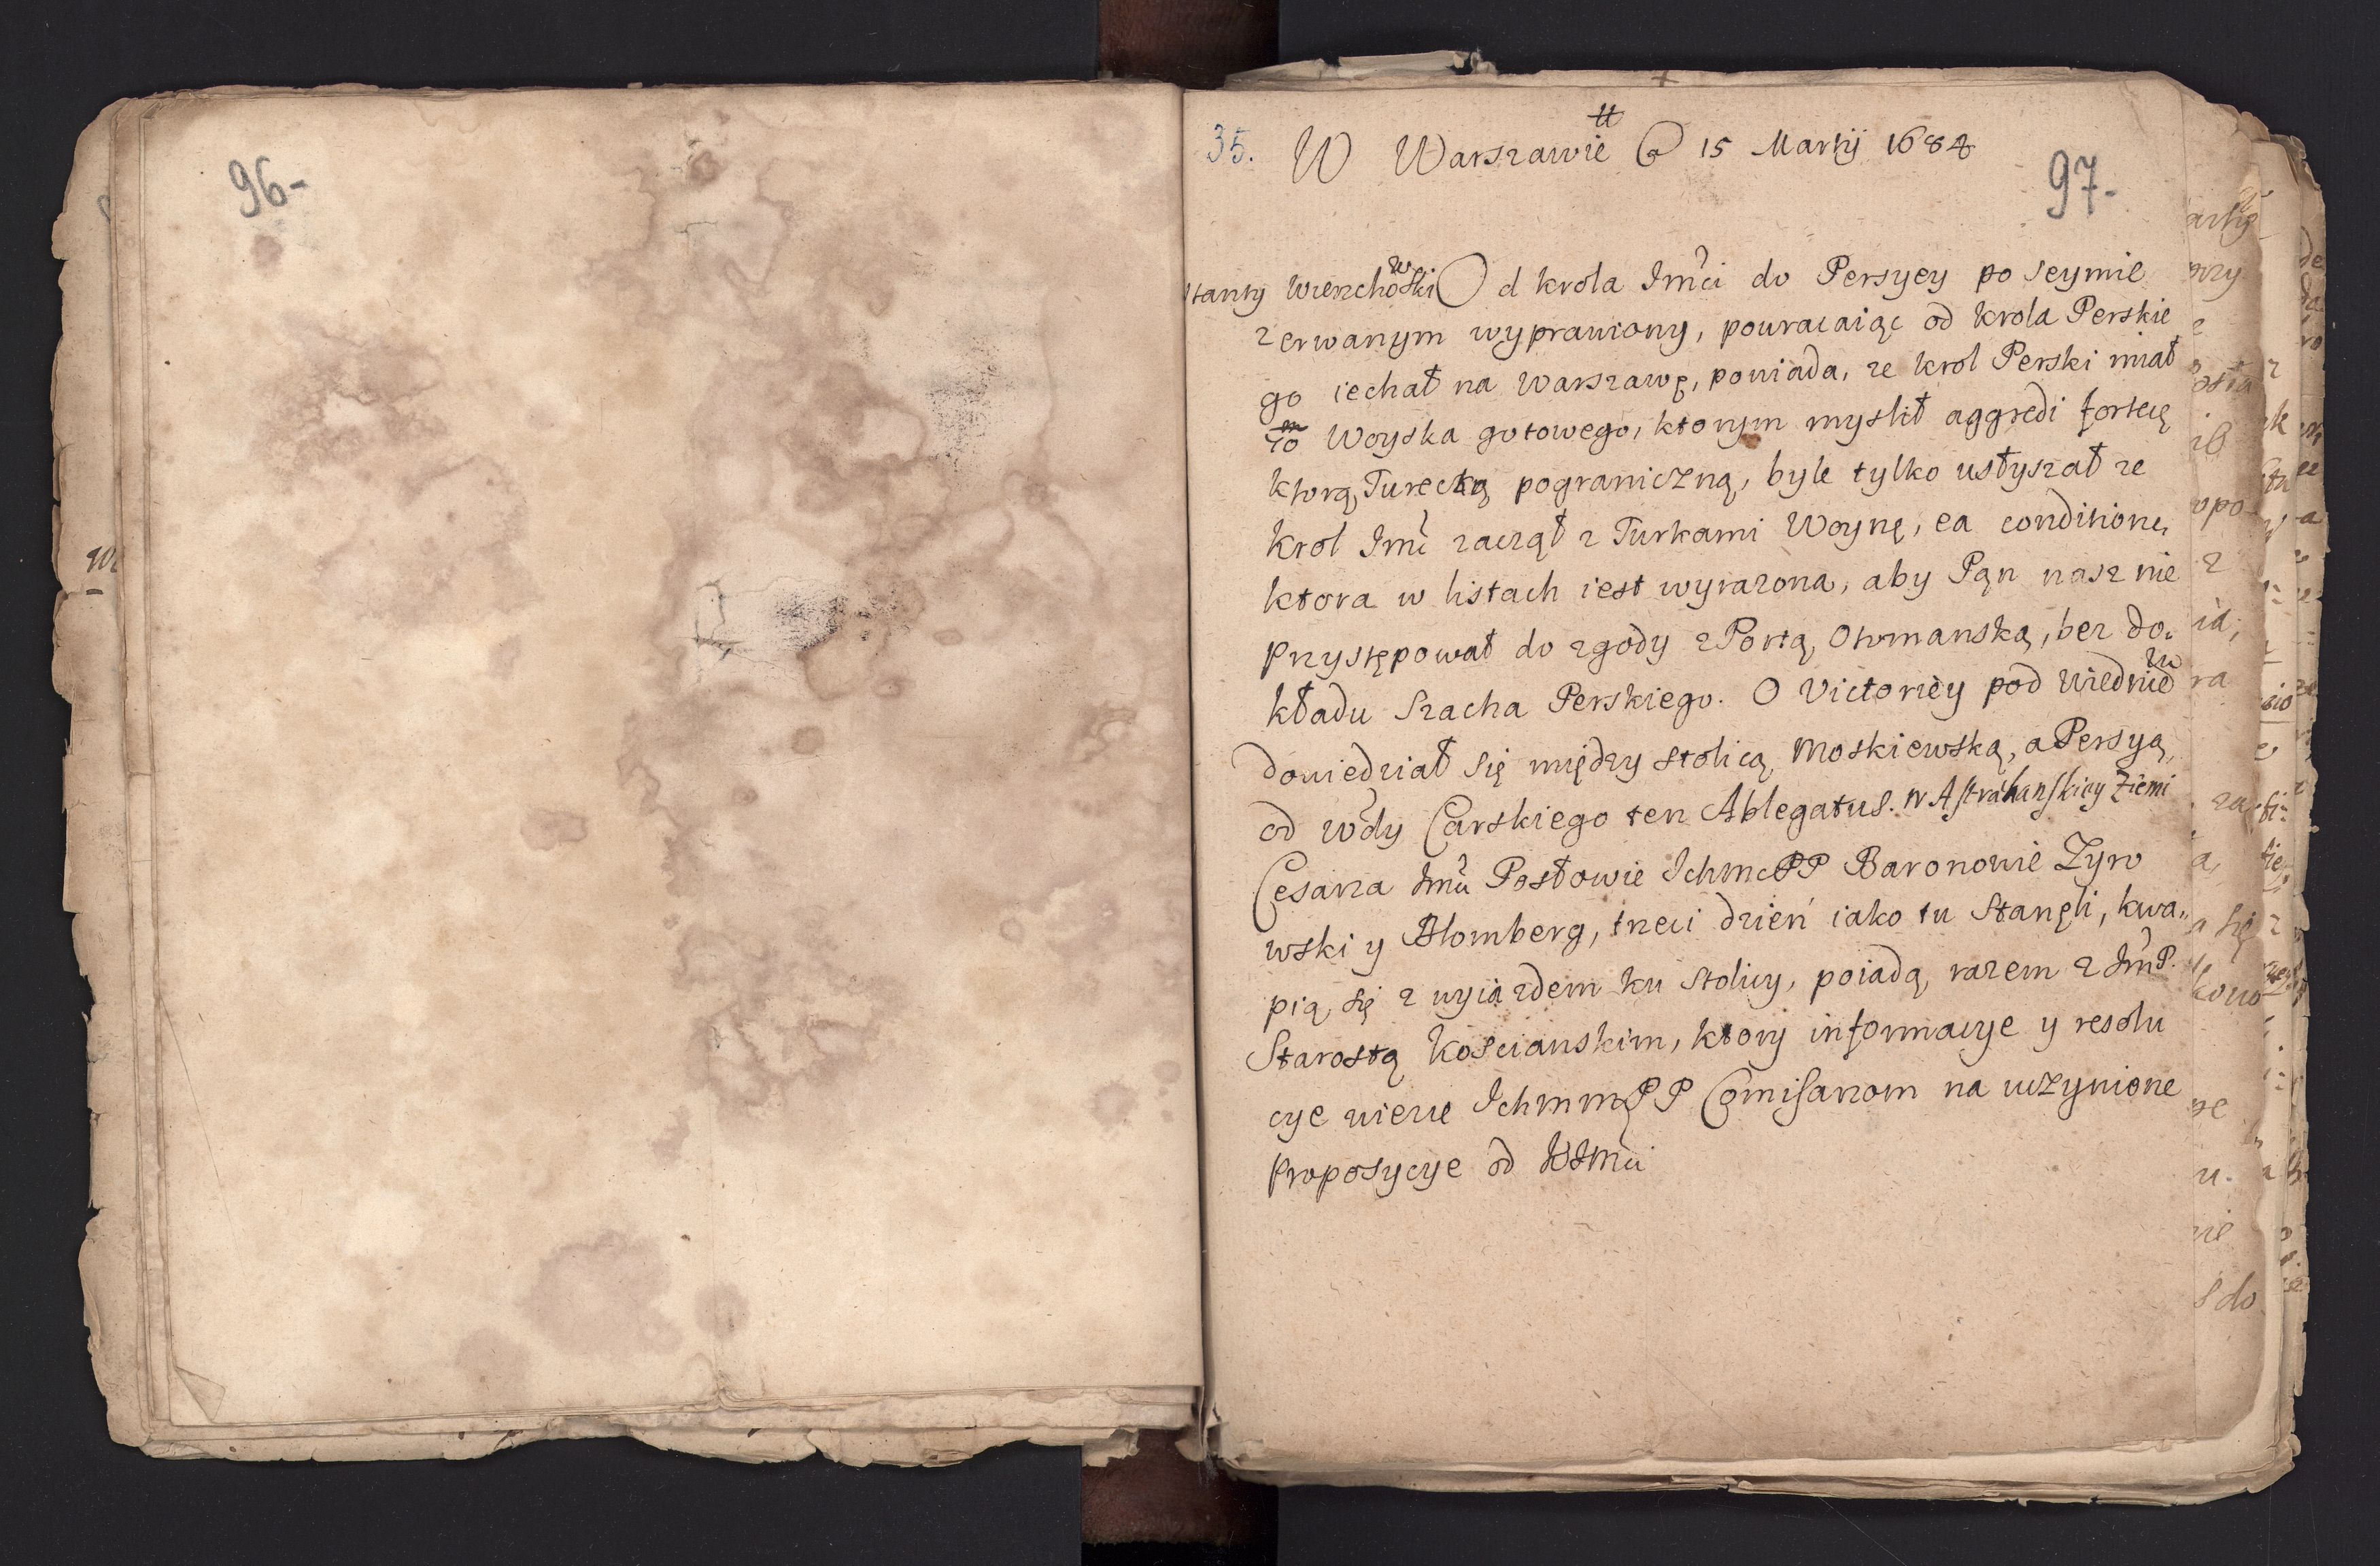 96-
35. W Warszawie 15 Martij 1684
97-
Wierzchowski Od krola Imci do Persyey po Seymie
zerwanym wyprawiony, powracaiąc od krola Perskie
go iechał na Warszawę, powiada, ze krol Perski miał
40 m Woyska gotowego, ktorym myslił aggredi fortecę
ktorą Turecką pograniczną, byle tylko usłyszał ze
krol Imc zaczął z Turkami Woynę, ea conditione,
ktora w listach iest wyrazona, aby Pąn nasz nie
przystępował do zgody z Portą Otomanską, bez do.
kładu Szacha Perskiego. O Victoriey pod Wiedniem
dowiedział się między stolicą Moskiewską, a Persyą,
od wody Carskiego ten Ablegatus. w Astrahanskiey Ziemi
Cesarza Imci Posłowie Ichmc PP Baronowie Zyro
wski y Blomberg, trzeci dzień iako tu Stanęli, kwa„
pią się z wyiazdem ku Stolicy, poiadą razem z Im P.
Starostą Koscianskim, ktory informacye y resolu
cye wiezie Ichmm PP Comisarzom na uczynione
propozycye od KImci